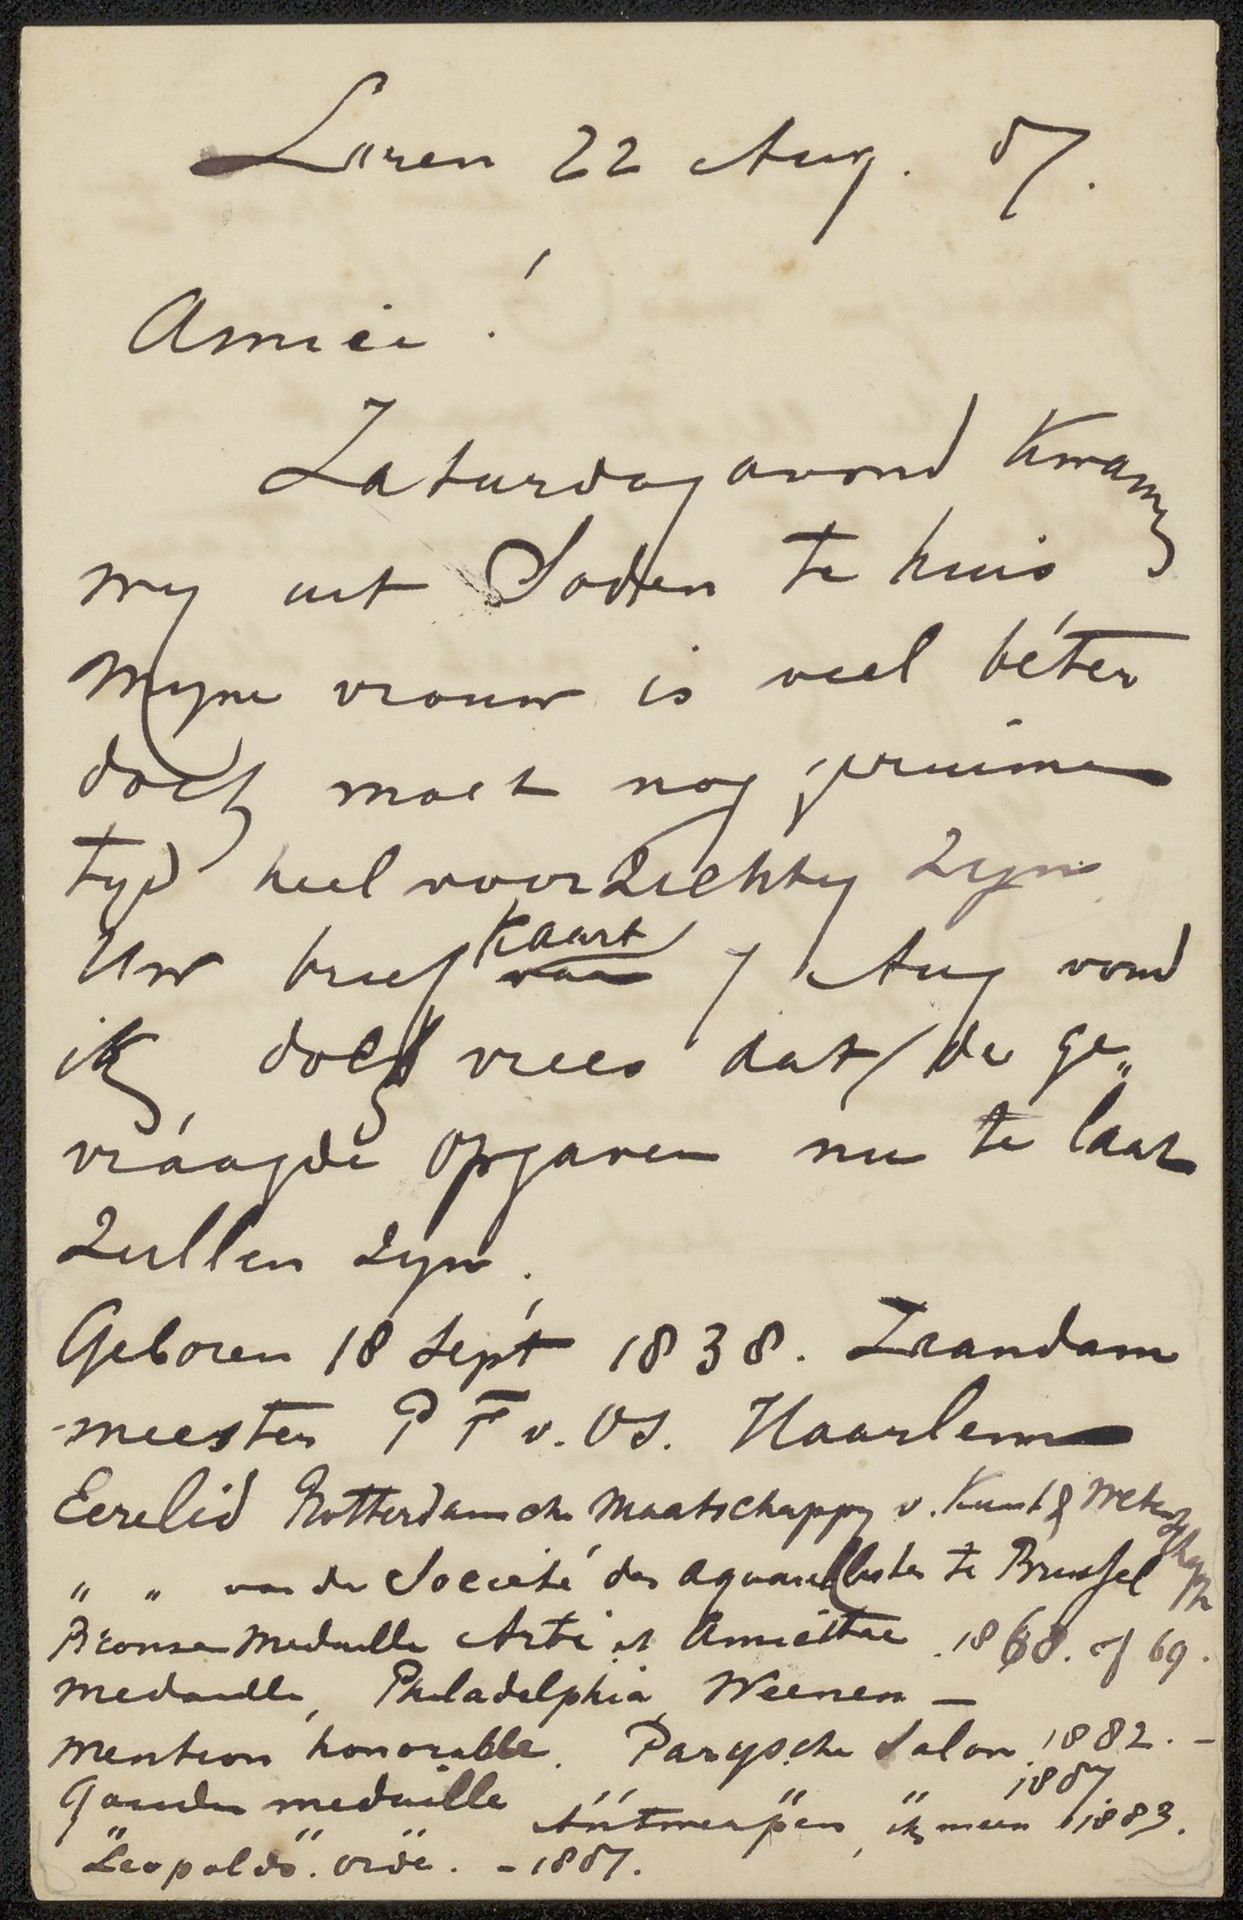 Laren 22 Aug. 87.
Amice!
Zaturdag avond kwamen
wy uit Soden te huis
Myne vrouw is veel béter
doch moet nog geruime
tyd heel voorzichtig zyn
Uw brief kaart van 7 Aug vond
ik doch vrees dat de ge„
vraagde opgaven nu te laat
zullen zyn.
Geboren 18 Sept 1838. Zaandam
meester P F v. Os. Haarlem
Eerelid Rotterdamsche Maatschappy v. Kunst & Wetenschappen
„ „ van de Societé des aquarellistes te Brussel
Bronse Medaille Arti et Amicitiae 1868. of 69.
medaille, Philadelphia, Weenen —
mention honorable. Parysche Salon 1882. —
Gouden medaille „ „ „ 1887
„ „ Antwerpen, ik meen 1883.
Leopolds. orde. - 1887.